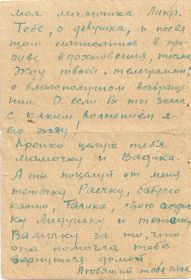 моя мамочка Лика.
Тебе, о девушка, и посвя
щаю написанное в при
ливе вдохновения, письмо
Жду твоей телеграммы
о благополучном возвраще-
нии. О если бы ты знала,
с каким волнением я
его жду!
Крепко целую тебя
мамочку и Вадика.
А ты поцелуй от меня
тетечку Раечку, бабусю
Катю, Галика, свою сестрен
ку Лидуську и тетечку
Валичку за то, что
она помогла тебе
вернуться домой.
Любящий тебя